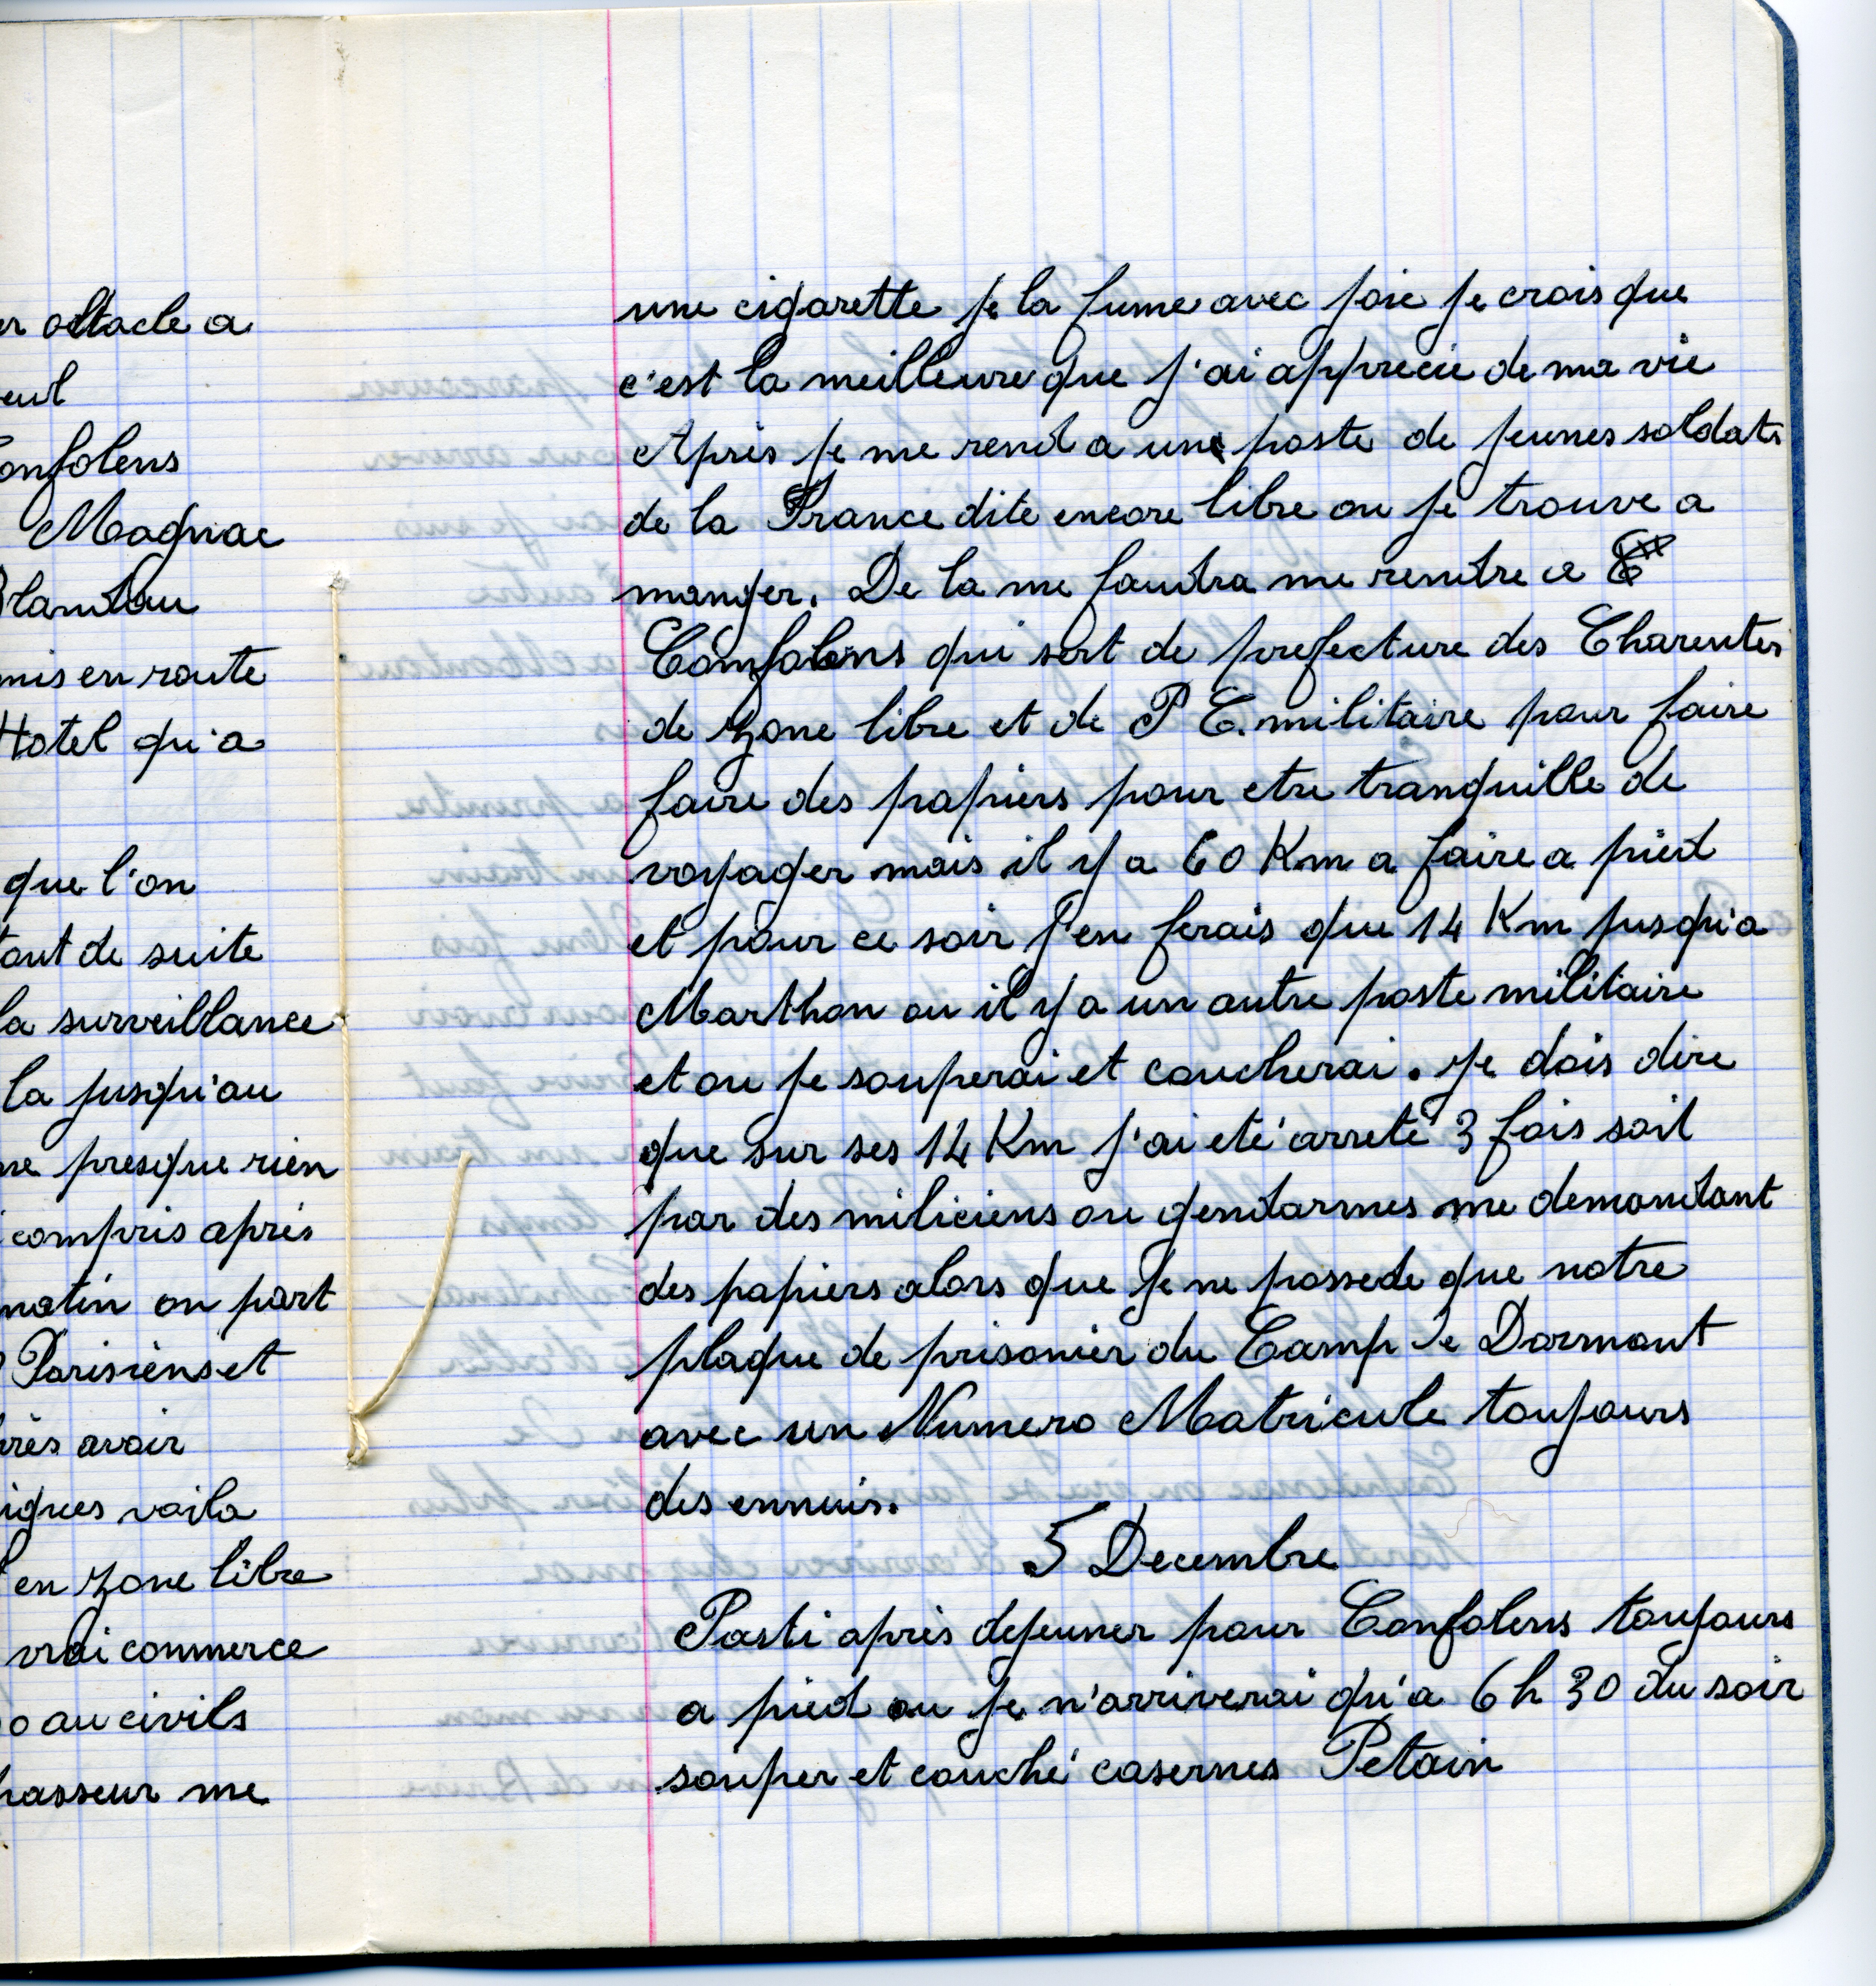 er obstacle a
eul
Confolens
Magnac
Blandau
mis en route
Hotel qu'a
que l'on
tout de suite
la surveillance
la jusqu'au
ne presque rien
compris après
matin on part
Parisiens et
près avoir
iques voila
en zone libre
vrai commerce
o au civils
passeur me
une cigarette je la fume avec joie je crois que
c'est la meilleure que j'ai apprecié de ma vie
Après je me rend a une poste de jeunes soldats
de la France dite encore libre ou je trouve a
manger. De la me faudra me rendre a
Confolens qui sert de prefecture des Charentes
de zone libre et de P C. militaire pour faire
faire des papiers pour etre tranquille de
voyager mais il y a 60 Km a faire a pied
et pour ce soir j'en ferais que 14 Km jusqu'a
Marthon ou il y a un autre poste militaire
et ou je souperai et coucherai. Je dois dire
que sur ses 14 Km j'ai eté arreté 3 fois soit
par des miliciens ou gendarmes me demandant
des papiers alors que je ne possede que notre
plaque de prisonier du Camp de Dormont
avec un Numero Matricule toujours
des ennuis.
5 Decembre
Parti après dejeuner pour Confolens toujours
a pied ou je n'arriverai qu'a 6 h 30 du soir
souper et couché casernes Petain